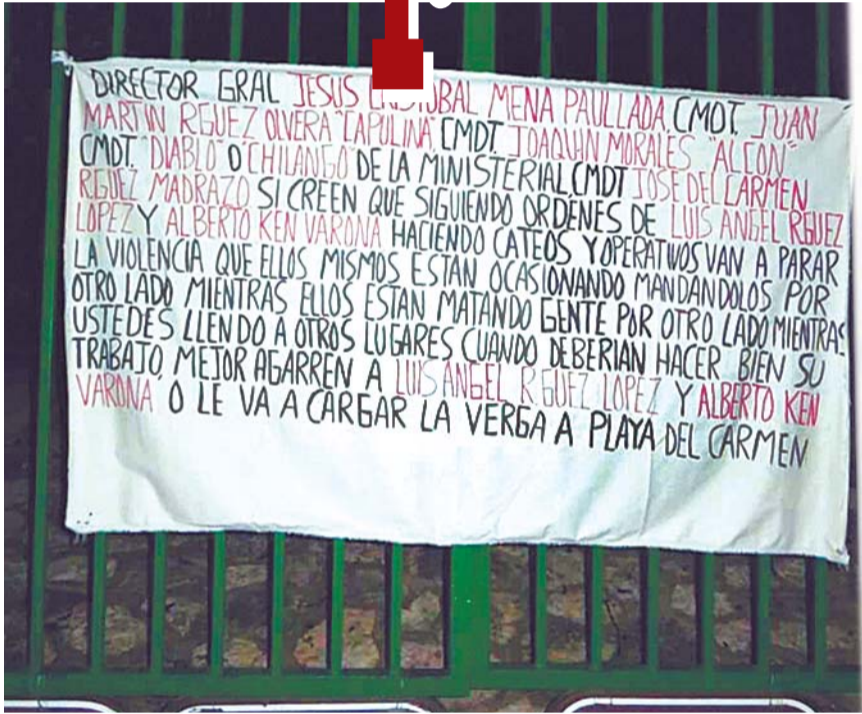 DIRECTOR GRAL JESUS CRISTOBAL MENA PAULLADA, CMDT. JUAN
MARTIN RGUEZ OLVERA "CAPULINA" CMDT. JOAQUIN MORALES "ALCON"
CMDT. "DIABLO" O "CHILANGO" DE LA MINISTERIAL CMDT JOSE DEL CARMEN
RGUEZ MADRAZO SI CREEN QUE SIGUIENDO ORDENES DE LUIS ANGEL RGUEZ
LOPEZ Y ALBERTO KEN VARONA HACIENDO CATEOS Y OPERATIVOS VAN A PARAR
LA VIOLENCIA QUE ELLOS MISMOS ESTAN OCASIONANDO MANDANDOLOS POR
OTRO LADO MIENTRAS ELLOS ESTAN MATANDO GENTE POR OTRO LADO MIENTRAS
USTEDES LLENDO A OTROS LUGARES CUANDO DEBERIAN HACER BIEN SU
TRABAJO, MEJOR AGARREN A LUIS ANGEL RGUEZ LOPEZ Y ALBERTO KEN
VARONA O LE VA A CARGAR LA VERGA A PLAYA DEL CARMEN